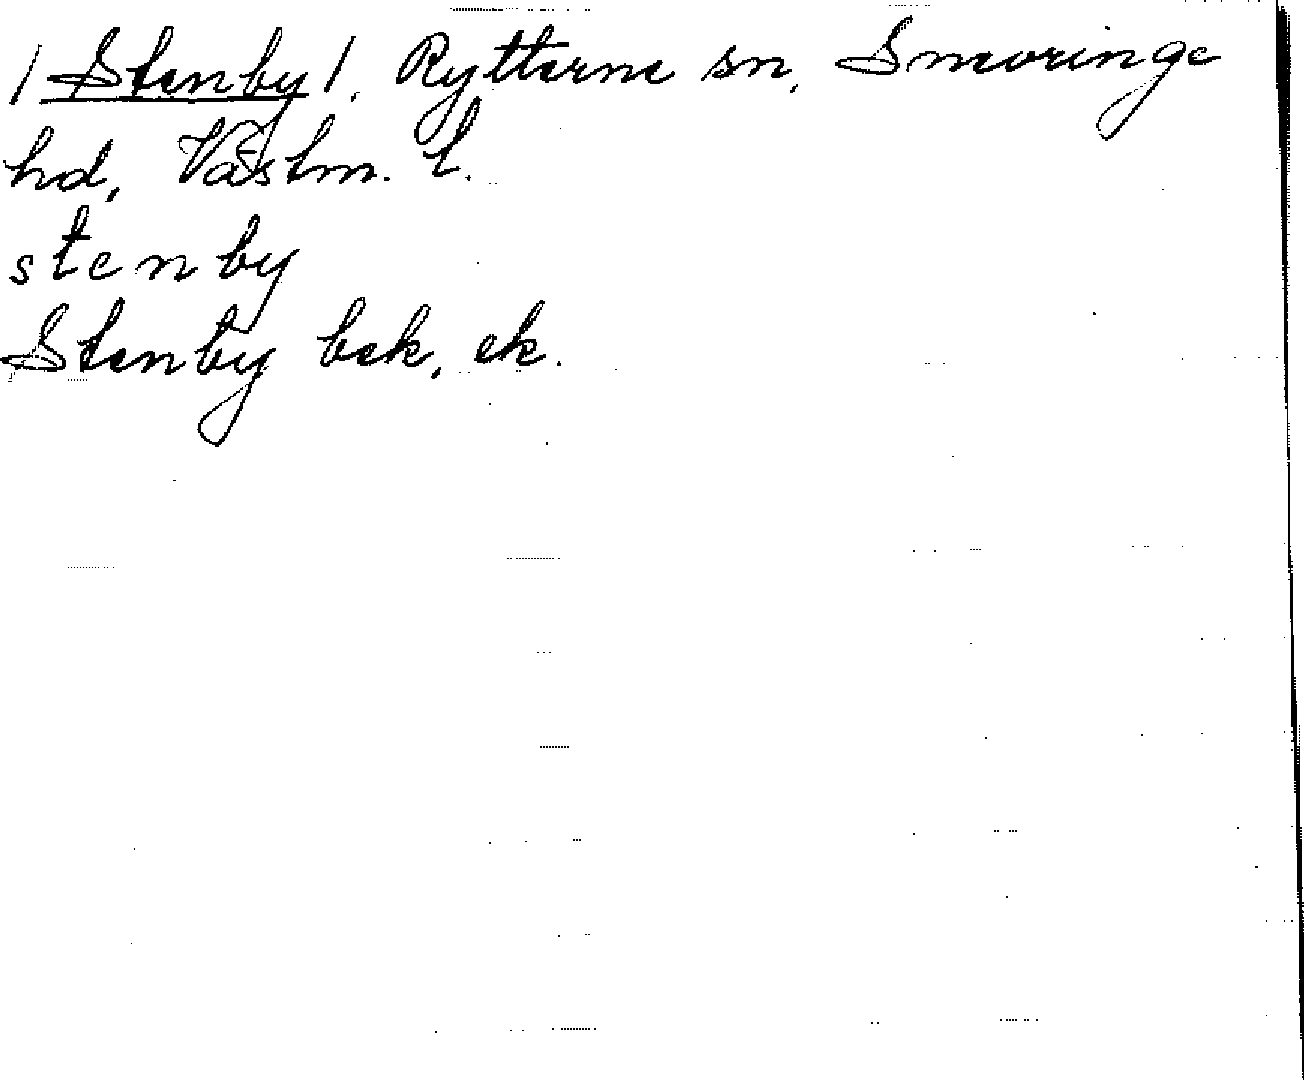 / Stenby /. Rytterne sn, Snevringe
hd, Västm. l.
stenby
Stenby bek, ek.